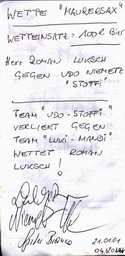 WETTE "MAURERSAX"
WETTEINSATZ: 100R BIER
HERR ROMAN LUKSCH
GEGEN UDO NIEMETZ
"STOFFI"
TEAM "UDO-STOFFI"
VERLIERT GEGEN
TEAM "LUKI-MANDI"
WETTET ROMAN
LUKSCH!
21.01.01